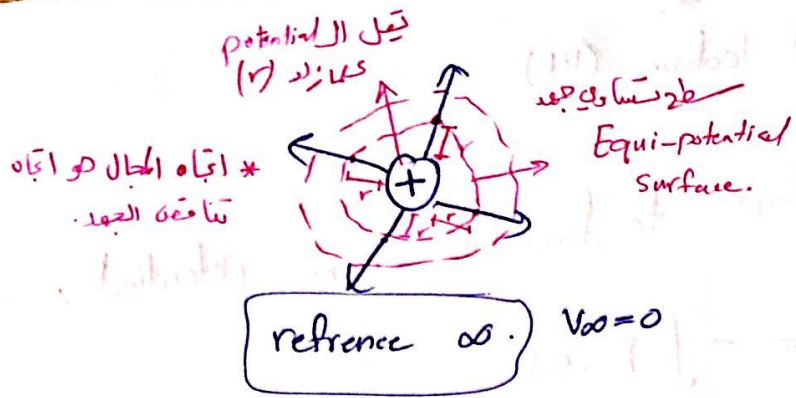 تيقل ال potential
كلما زاد (r)
سطح تساوي جهد
Equi-potential
surface.
* اتجاه المجال هو اتجاه
تناقص الجهد.
+
r
r
r
r
refrence ∞. V∞=0